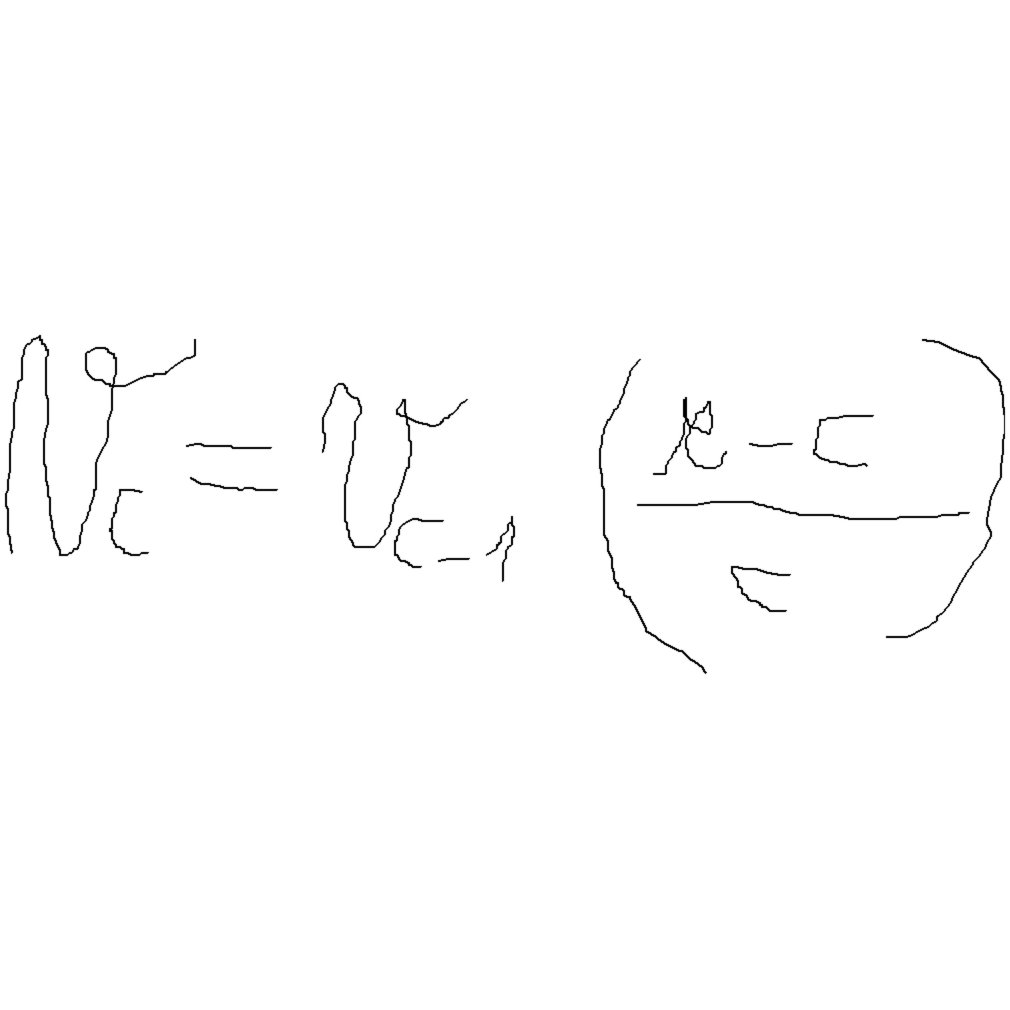 v_c = v_{c-1} (\frac{μ-c}{c})